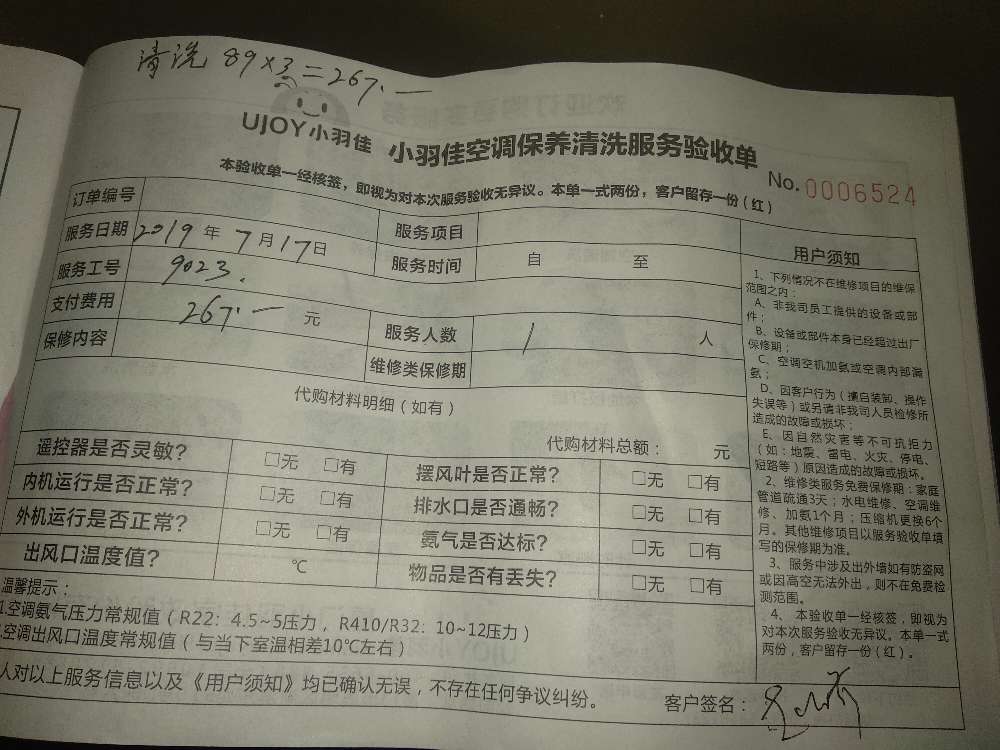 清洗 89×3=267.一
UJOY小羽佳 小羽佳空调保养清洗服务验收单
No. 0006524
本验收单一经核签，即视为对本次服务验收无异议。本单一式两份，客户留存一份（红）
订单编号 服务项目
服务日期 2019 年 7 月 17 日 服务时间 自 至
服务工号 9023.
支付费用 267.一 元 服务人数 1 人
保修内容 维修类保修期
代购材料明细（如有）
代购材料总额： 元
遥控器是否灵敏？ □无 □有 摆风叶是否正常？ □无 □有
内机运行是否正常？ □无 □有 排水口是否通畅？ □无 □有
外机运行是否正常？ □无 □有 氨气是否达标？ □无 □有
出风口温度值？ ℃ 物品是否有丢失？ □无 □有
温馨提示：
1.空调氨气压力常规值（R22：4.5~5压力，R410/R32：10~12压力）
.空调出风口温度常规值（与当下室温相差10℃左右）
人对以上服务信息以及《用户须知》均已确认无误，不存在任何争议纠纷。
客户签名：
用户须知
1、下列情况不在维修项目的维保
范围之内：
A、非我司员工提供的设备或部
件；
B、设备或部件本身已经超过出厂
保修期；
C、空调空机加氨或空调内部漏
氨；
D、因客户行为（擅自装卸、操作
失误等）或另请非我司人员检修所
造成的故障或损坏；
E、因自然灾害等不可抗拒力
（如：地震、雷电、火灾、停电、
短路等）原因造成的故障或损坏。
2、维修类服务免费保修期：家庭
管道疏通3天；水电维修、空调维
修、加氨1个月；压缩机更换6个
月。其他维修项目以服务验收单填
写的保修期为准。
3、服务中涉及出外墙如有防盗网
或因高空无法外出，则不在免费检
测范围。
4、本验收单一经核签，即视为
对本次服务验收无异议。本单一式
两份，客户留存一份（红）。